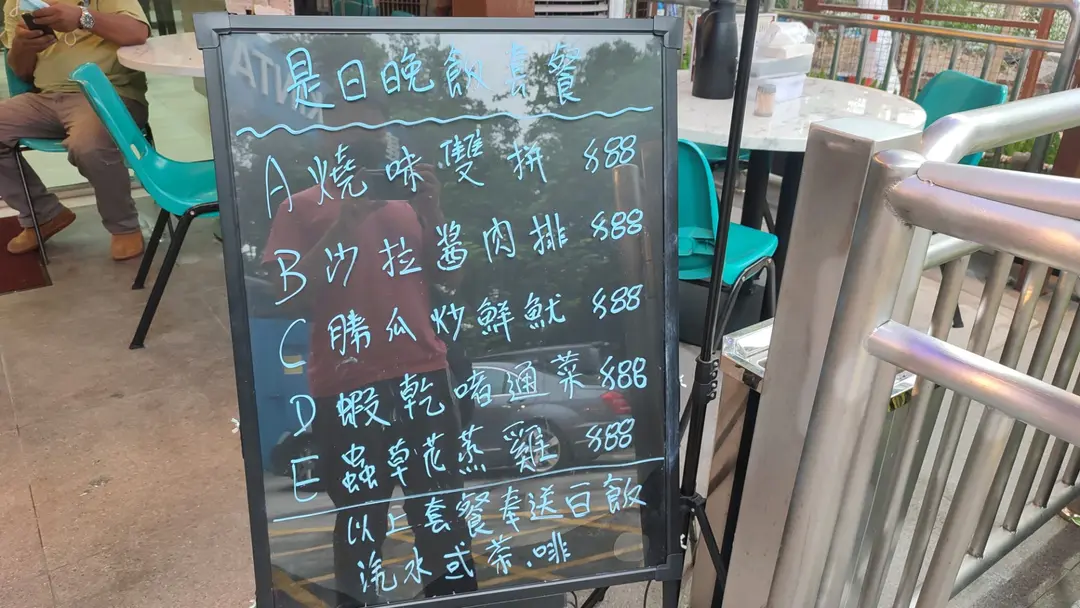 是日晚飯套餐
A 燒味雙拼 $88
B 沙拉醬肉排 $88
C 勝瓜炒鮮魷 $88
D 蝦乾啫通菜 $88
E 蟲草花蒸雞 $88
以上套餐奉送白飯
汽水或茶.啡